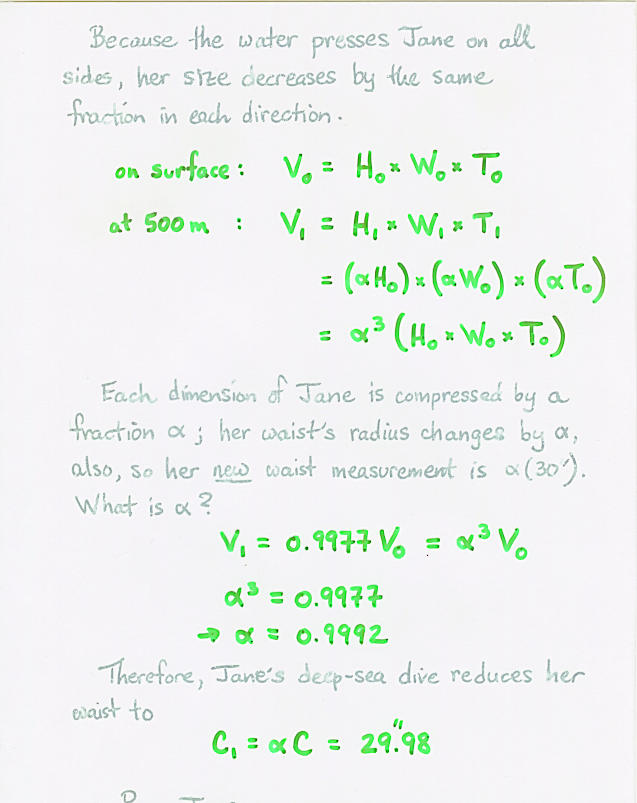 Because the water presses Jane on all
sides, her size decreases by the same
fraction in each direction.
on surface: V₀ = H₀ × W₀ × T₀
at 500 m : V₁ = H₁ × W₁ × T₁
= (αH₀) × (αW₀) × (αT₀)
= α³ (H₀ × W₀ × T₀)
Each dimension of Jane is compressed by a
fraction α; her waist's radius changes by α,
also, so her new waist measurement is α(30").
What is α?
V₁ = 0.9977 V₀ = α³ V₀
α³ = 0.9977
→ α = 0.9992
Therefore, Jane's deep-sea dive reduces her
waist to
C₁ = αC = 29."98